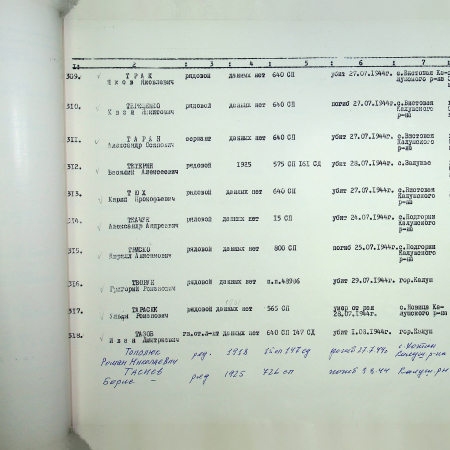 2 3 4 5 6 7
309. ТРАК рядовой данных нет 640 СП убит 27.07.1944г. с.Вистовая Ка-
Яков Яковлевич лушского р-на
310. ТЕРЕЩЕНКО рядовой данных нет 640 СП погиб 27.07.1944г. с.Вистовая
Калушского
р-на
311. ТАРАН сержант данных нет 640 СП убит 27.07.1944г. с.Вистовая
Александр Осипович Калушского
р-на
312. ТЕТЕРИН рядовой 1925 575 СП 161 СД убит 28.07.1944г.
Василий Алексеевич
313. ТЮХ рядовой данных нет 640 СП убит 27.07.1944г. с.Вистовая
Кирил Прокофьевич Калушского
р-на
314. рядовой данных нет 15 СП убит 24.07.1944г. с.Подгорки
Александр Андреевич Калушского
р-на
315. рядовой данных нет 800 СП погиб 25.07.1944г. с.Подгорки
Калушского
р-на
316. рядовой данных нет п.п.48986 убит 29.07.1944г. гор.Калуш
Григорий Романович
317. ТАРАСЮК рядовой данных нет 565 СП умер от ран с.Новица Ка-
Романович 28.07.1944г. лушского р-на
318. ТАЗОВ гв.ст.л-нт данных нет 640 СП 147 СД убит 1.08.1944г. гор.Калуш
Иван Дмитриевич
Тополюк ряд. 1918 15 сп 147 сд погиб 27.7.44
Роман Николаевич Калуш р-на
Тасиев ряд 1925 726 сп погиб 9.8.44 Калуш р-н
Борис –